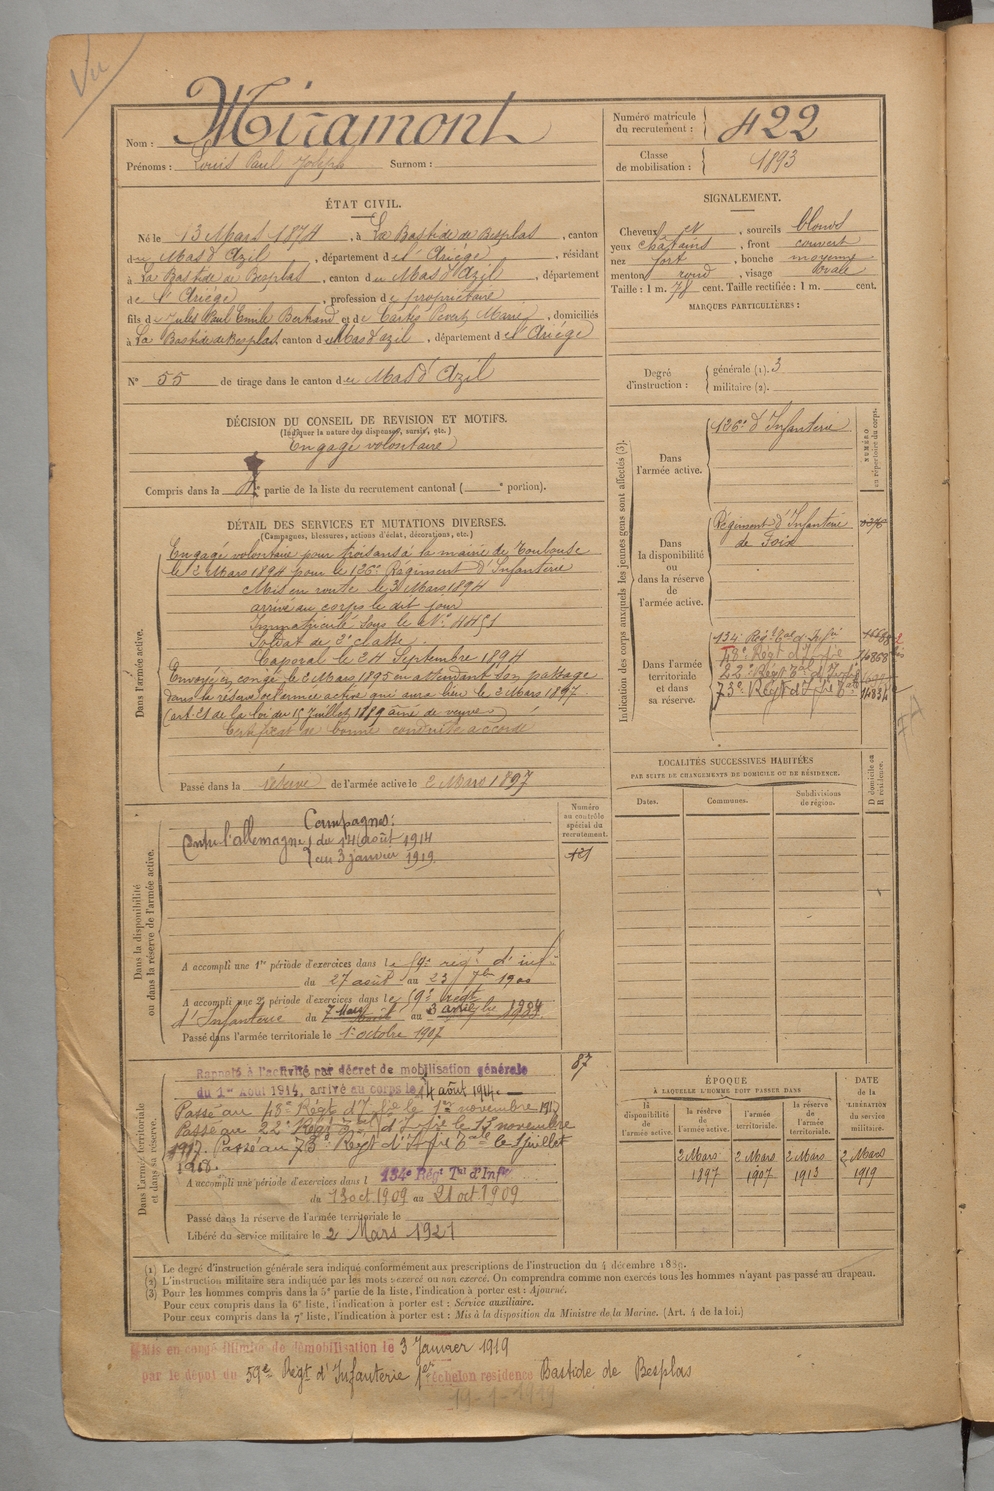 Vu
Nom : Miramont
Prénoms : Louis Paul Joseph Surnom :
Numéro matricule du recrutement : 422
Classe de mobilisation : 1893
ÉTAT CIVIL.
Né le 13 Mars 1874, à La Bastide de Besplas, canton
du Mas d'Azil, département de l'Ariège, résidant
à La Bastide de Besplas, canton du Mas d'Azil, département
de l'Ariège, profession de propriétaire
fils de Jules Paul Emile Bertrand et de Marie, domiciliés
à La Bastide de Besplas, canton du Mas d'azil, département de l'Ariège
N° 55 de tirage dans le canton du Mas d'Azil
SIGNALEMENT.
Cheveux et, sourcils blonds
yeux chatains, front couvert
nez fort, bouche moyenne
menton rond, visage ovale
Taille : 1 m. 78 cent. Taille rectifiée : 1 m. cent.
MARQUES PARTICULIÈRES :
Degré d'instruction : générale (1). 3
militaire (2).
DÉCISION DU CONSEIL DE REVISION ET MOTIFS.
(Indiquer la nature des dispenses, sursis, etc.)
Engagé volontaire
Compris dans la partie de la liste du recrutement cantonal ( e portion).
DÉTAIL DES SERVICES ET MUTATIONS DIVERSES.
(Campagnes, blessures, actions d'éclat, décorations, etc.)
Dans l'armée active.
Engagé volontaire pour trois ans à la mairie de Toulouse
le 2 Mars 1894 pour le 126e Régiment d'Infanterie
Mis en route le 3 Mars 1894
arrivé au corps le dit jour
Immatriculé sous le N° 4451
Soldat de 2e classe.
Caporal le 24 Septembre 1894
Envoyé en congé le 2 Mars 1895 en attendant son passage
dans la réserve de l'armée active qui aura lieu le 2 Mars 1897
(art. 21 de la loi du 15 Juillet 1889 ainé de veuve)
Certificat de bonne conduite accordé
Passé dans la réserve de l'armée active le 2 Mars 1897
Indication des corps auxquels les jeunes gens sont affectés (3).
NUMÉRO au répertoire du corps.
Dans l'armée active.
126e d'Infanterie
Dans la disponibilité ou dans la réserve de l'armée active.
Régiment d'Infanterie
de Foix
Dans l'armée territoriale et dans sa réserve.
134e Régt Tal d'Infie
43e Régt d'Infie
22e Régt Tal d'Infie
73e Régt d'Infie Tale
LOCALITÉS SUCCESSIVES HABITÉES
PAR SUITE DE CHANGEMENTS DE DOMICILE OU DE RÉSIDENCE.
Dates. Communes. Subdivisions de région. D domicile ou R résidence.
Dans la disponibilité ou dans la réserve de l'armée active.
Numéro au contrôle spécial du recrutement.
Campagnes:
Contre l'allemagne du 14 août 1914
au 3 janvier 1919
A accompli une 1re période d'exercices dans le 9e régt d'inf.
du 27 août au 23 7bre 1900
A accompli une 2e période d'exercices dans le 9e régt
d'Infanterie du 7 Mars au 3 avril
Passé dans l'armée territoriale le 1er octobre 1907
87
Dans l'armée territoriale et dans sa réserve.
Rappelé à l'activité par décret de mobilisation générale
du 1er Août 1914, arrivé au corps le 14 août 1914.
Passé au 43e Régt d'Infie le 1er novembre 1917
Passé au 22e Régt d'Infie le 15 novembre
1917. Passé au 73e Régt d'Infie Tale le 1 Juillet
1918.
A accompli une période d'exercices dans l 134e Régt Tal d'Infie
du 13 oct 1909 au 21 oct 1909
Passé dans la réserve de l'armée territoriale le
Libéré du service militaire le 2 Mars 1921
ÉPOQUE
À LAQUELLE L'HOMME DOIT PASSER DANS
la disponibilité de l'armée active. la réserve de l'armée active. l'armée territoriale. la réserve de l'armée territoriale.
DATE de la LIBÉRATION du service militaire.
2 Mars 1897 2 Mars 1907 2 Mars 1913 2 Mars 1919
(1) Le degré d'instruction générale sera indiqué conformément aux prescriptions de l'instruction du 4 décembre 1889.
(2) L'instruction militaire sera indiquée par les mots : exercé ou non exercé. On comprendra comme non exercés tous les hommes n'ayant pas passé au drapeau.
(3) Pour les hommes compris dans la 5e partie de la liste, l'indication à porter est : Ajourné.
Pour ceux compris dans la 6e liste, l'indication à porter est : Service auxiliaire.
Pour ceux compris dans la 7e liste, l'indication à porter est : Mis à la disposition du Ministre de la Marine. (Art. 4 de la loi.)
Mis en congé illimité de démobilisation le 3 Janvier 1919
par le dépôt du 59e Régt d'Infanterie 1er échelon résidence Bastide de Besplas
19-1-1919